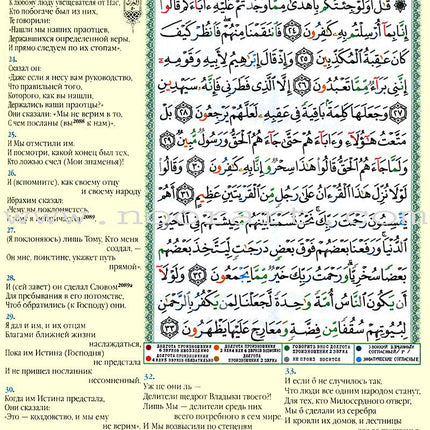 к любому люду увещевателя от Нас,
Кто побогаче был из них,
Те говорили:
«Нашли мы наших праотцев,
Державшихся определенной веры,
И прямо следуем по их стопам».
24.
Сказал он:
«Даже если я несу вам руководство,
Что правильней того,
Которого, как вы нашли,
Держались ваши праотцы?»
Они сказали: «Мы не верим в то,
С чем посланы (вы к нам)».
25.
И Мы отмстили им.
И посмотри, какой конец был тех,
Кто ложью счел (Мои знаменья)!
26.
И (вспомните), как своему отцу
и своему народу
Ибрахим сказал:
27.
(Я поклоняюсь) лишь Тому, Кто меня
создал, —
Он мне, поистине, укажет путь
прямой».
28.
И (сей завет) он сделал Словом
Для пребывания в его потомстве,
Чтоб обратились (к Господу) они.
29.
Я дал и им, и их отцам
Благами ближней жизни
наслаждаться,
Пока им Истина (Господня)
не предстала
И не пришел посланник
несомненный.
30.
Когда им Истина предстала,
Они сказали:
«Это — колдовство, и мы ему
не верим».
قَٰلَ أَوَلَوْ جِئْتُكُم بِأَهْدَىٰ مِمَّا وَجَدتُّمْ عَلَيْهِ ءَابَآءَكُمْ قَالُوٓا۟
إِنَّا بِمَآ أُرْسِلْتُم بِهِۦ كَٰفِرُونَ ﴿٢٤﴾ فَٱنتَقَمْنَا مِنْهُمْ فَٱنظُرْ كَيْفَ
كَانَ عَٰقِبَةُ ٱلْمُكَذِّبِينَ ﴿٢٥﴾ وَإِذْ قَالَ إِبْرَٰهِيمُ لِأَبِيهِ وَقَوْمِهِۦٓ
إِنَّنِى بَرَآءٌ مِّمَّا تَعْبُدُونَ ﴿٢٦﴾ إِلَّا ٱلَّذِى فَطَرَنِى فَإِنَّهُۥ سَيَهْدِينِ
﴿٢٧﴾ وَجَعَلَهَا كَلِمَةًۢ بَاقِيَةً فِى عَقِبِهِۦ لَعَلَّهُمْ يَرْجِعُونَ ﴿٢٨﴾ بَلْ
مَتَّعْتُ هَٰٓؤُلَآءِ وَءَابَآءَهُمْ حَتَّىٰ جَآءَهُمُ ٱلْحَقُّ وَرَسُولٌ مُّبِينٌ
﴿٢٩﴾ وَلَمَّا جَآءَهُمُ ٱلْحَقُّ قَالُوا۟ هَٰذَا سِحْرٌ وَإِنَّا بِهِۦ كَٰفِرُونَ ﴿٣٠﴾ وَقَالُوا۟
لَوْلَا نُزِّلَ هَٰذَا ٱلْقُرْءَانُ عَلَىٰ رَجُلٍ مِّنَ ٱلْقَرْيَتَيْنِ عَظِيمٍ ﴿٣١﴾ أَهُمْ
يَقْسِمُونَ رَحْمَتَ رَبِّكَ نَحْنُ قَسَمْنَا بَيْنَهُم مَّعِيشَتَهُمْ فِى ٱلْحَيَوٰةِ
ٱلدُّنْيَا وَرَفَعْنَا بَعْضَهُمْ فَوْقَ بَعْضٍ دَرَجَٰتٍ لِّيَتَّخِذَ بَعْضُهُم
بَعْضًا سُخْرِيًّا وَرَحْمَتُ رَبِّكَ خَيْرٌ مِّمَّا يَجْمَعُونَ ﴿٣٢﴾ وَلَوْلَآ
أَن يَكُونَ ٱلنَّاسُ أُمَّةً وَٰحِدَةً لَّجَعَلْنَا لِمَن يَكْفُرُ بِٱلرَّحْمَٰنِ
لِبُيُوتِهِمْ سُقُفًا مِّن فِضَّةٍ وَمَعَارِجَ عَلَيْهَا يَظْهَرُونَ ﴿٣٣﴾
32.
Уж не они ль —
Делители щедрот Владыки твоего?!
Лишь Мы — делители средь них
всего потребного в сем мире
И Мы возвысили по степеням
33.
И если б не случилось так,
Что люди все одним народом станут,
Для тех, кто Милосердного отверг,
Мы б сделали из серебра
И кровли их домов, и лестницы